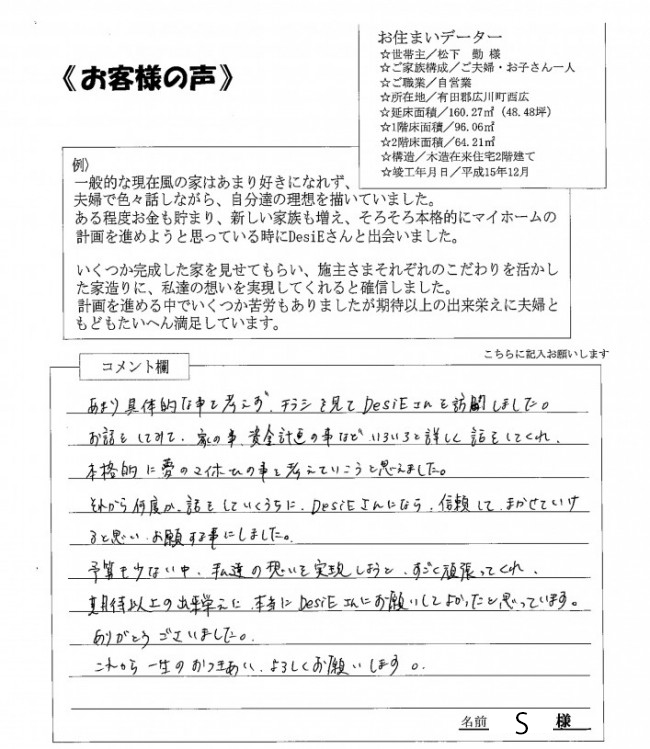 《お客様の声》
お住まいデーター
☆世帯主／松下 勤 様
☆ご家族構成／ご夫婦・お子さん一人
☆ご職業／自営業
☆所在地／有田郡広川町西広
☆延床面積／160.27㎡（48.48坪）
☆1階床面積／96.06㎡
☆2階床面積／64.21㎡
☆構造／木造在来住宅2階建て
☆竣工年月日／平成15年12月
例）
一般的な現在風の家はあまり好きになれず、
夫婦で色々話しながら、自分達の理想を描いていました。
ある程度お金も貯まり、新しい家族も増え、そろそろ本格的にマイホームの
計画を進めようと思っている時にDesiEさんと出会いました。
いくつか完成した家を見せてもらい、施主さまそれぞれのこだわりを活かし
た家造りに、私達の想いを実現してくれると確信しました。
計画を進める中でいくつか苦労もありましたが期待以上の出来栄えに夫婦と
もどもたいへん満足しています。
こちらに記入お願いします
コメント欄
あまり具体的な事を考えず、チラシを見てDesiEさんを訪問しました。
お話をしてみて、家の事、資金計画の事など、いろいろと詳しく話をしてくれ、
本格的に夢のマイホームの事を考えていこうと思えました。
それから何度か、話をしていくうちに、DesiEさんになら、信頼して、まかせていけ
ると思い、お願する事にしました。
予算も少ない中、私達の想いを実現しようと、すごく頑張ってくれ、
期待以上の出来栄えに、本当にDesiEさんにお願いしてよかったと思っています。
ありがとうございました。
これから一生のおつきあい、よろしくお願いします。
名前 S 様